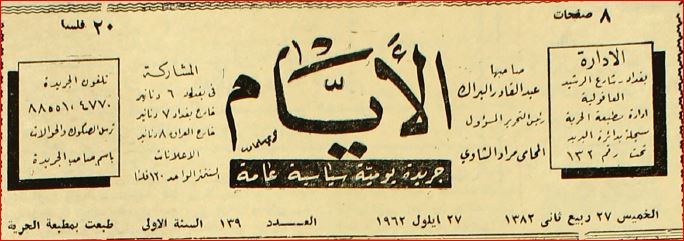 ٨ صفحات
٢٠ فلسا
الادارة
بغداد - شارع الرشيد
العاقولية
ادارة مطبعة الحرية
سجلت بدائرة البريد
تحت رقم ١٣٢
صاحبها
عبدالقادر البراك
رئيس التحرير المسؤول
المحامي مراد الشاوي
الأيام
جريدة يومية سياسية عامة
المشاركة
في بغداد ٦ دنانير
خارج بغداد ٧ دنانير
خارج العراق ٨ دنانير
الاعلانات
السنتمتر الواحد ١٢٠ فلسا
تلفون الجريدة
٨٨٥٥١٠٤٧٧٠
ترسل الصكوك والحوالات
باسم صاحب الجريدة
الخميس ٢٧ ربيع ثانى ١٣٨٢ ٢٧ ايلول ١٩٦٢ العـــدد ١٣٩ السنة الاولى طبعت بمطبعة الحرية